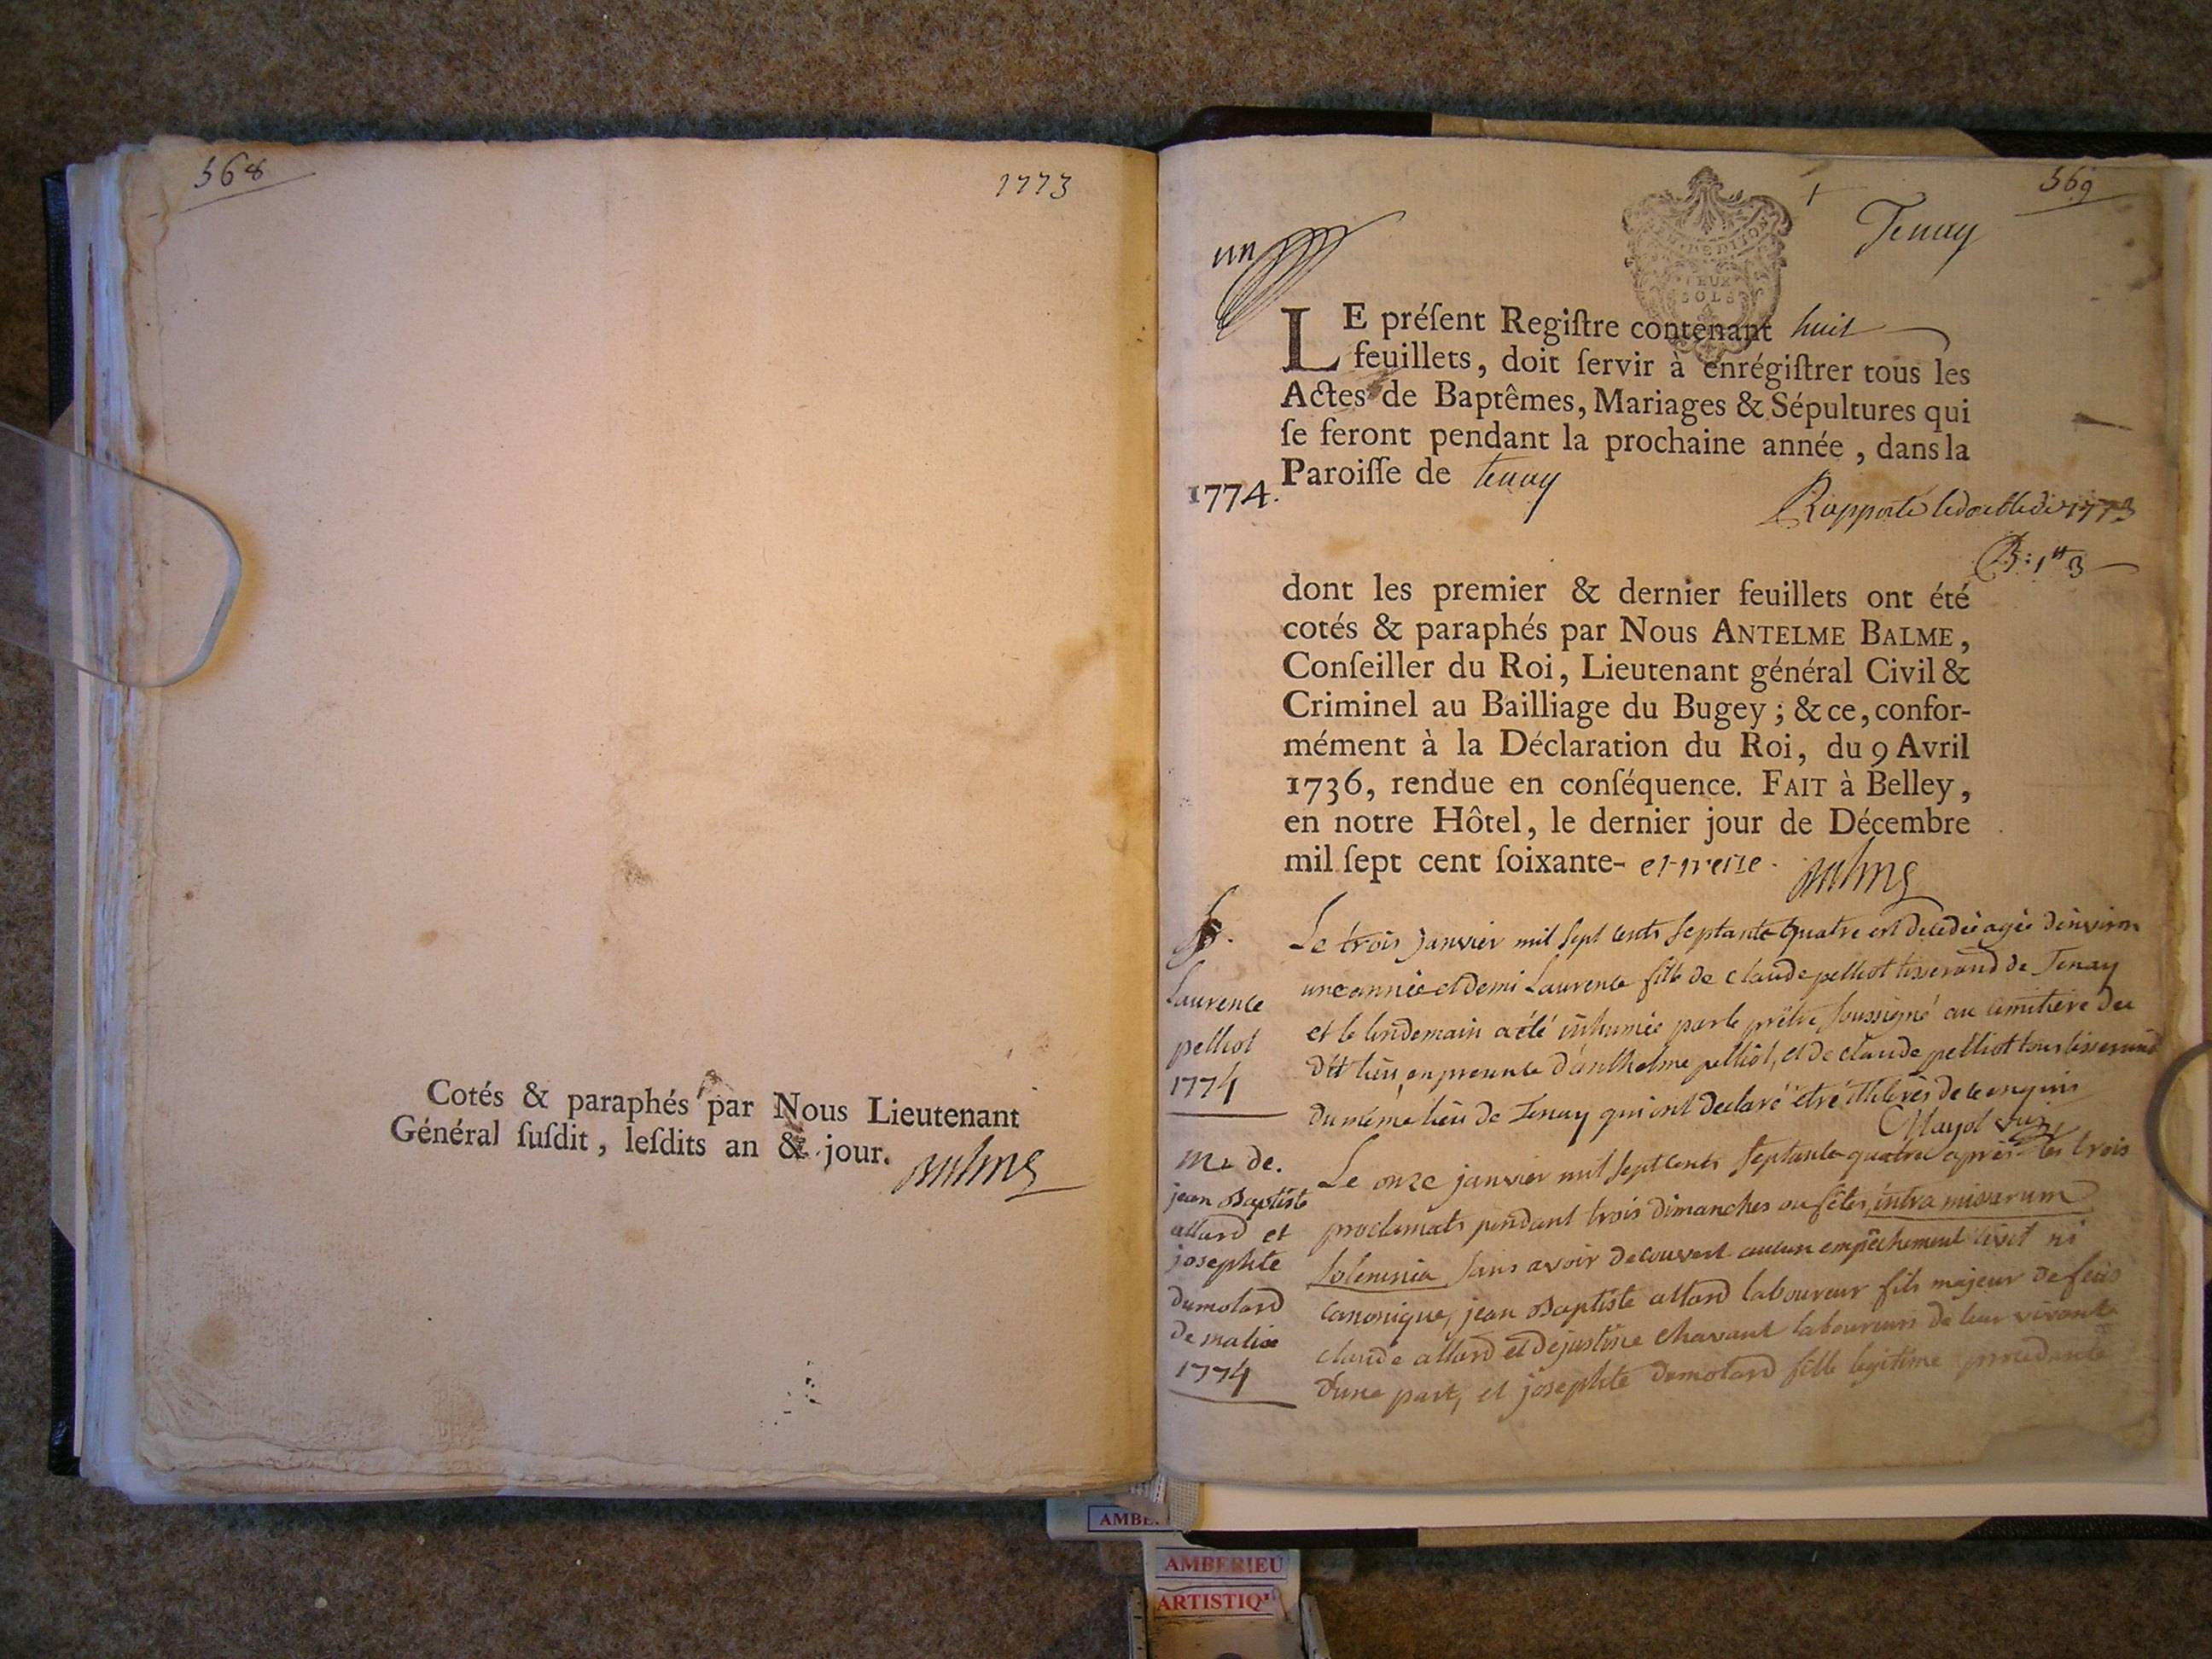 568
1773
Cotés & paraphés par Nous Lieutenant
Général ſuſdit, leſdits an & jour.
Balme
569
un
Tenay
GEN. DE DIJON
DEUX
SOLS
LE préſent Regiſtre contenant huit
feuillets, doit ſervir à enrégiſtrer tous les
Actes de Baptêmes, Mariages & Sépultures qui
ſe feront pendant la prochaine année, dans la
Paroiſſe de tenay
1774.
Rapporté le double de 1773
dont les premier & dernier feuillets ont été
cotés & paraphés par Nous ANTELME BALME,
Conſeiller du Roi, Lieutenant général Civil &
Criminel au Bailliage du Bugey; & ce, confor-
mément à la Déclaration du Roi, du 9 Avril
1736, rendue en conſéquence. FAIT à Belley,
en notre Hôtel, le dernier jour de Décembre
mil ſept cent ſoixante- et treize. Balme
S.
Laurence
pelliot
1774
Le trois Janvier mil sept cents septante quatre est decedée agée d'environ
une année et demi Laurence fille de Claude pelliot tisserand de Tenay
et le lendemain a été inhumée par le prêtre soussigné au cimitière du
dit lieu, en presence d'anthelme pelliot, et de claude pelliot tous tisserand
du même lieu de Tenay qui ont declaré être illiterés de ce enquis
Mayol vic.
M. de.
jean Baptiste
allard et
josephte
dumolard
de malix
1774
Le onze janvier mil sept cents septante quatre après les trois
proclamats pendant trois dimanches ou fêtes, intra missarum
Solemnia sans avoir decouvert aucun empêchement civil ni
canonique, jean Baptiste allard laboureur fils majeur de feus
claude allard et de justine Chavant laboureurs de leur vivant
d'une part, et josephte dumolard fille legitime procedante
AMBE
AMBERIEU
ARTISTIQ